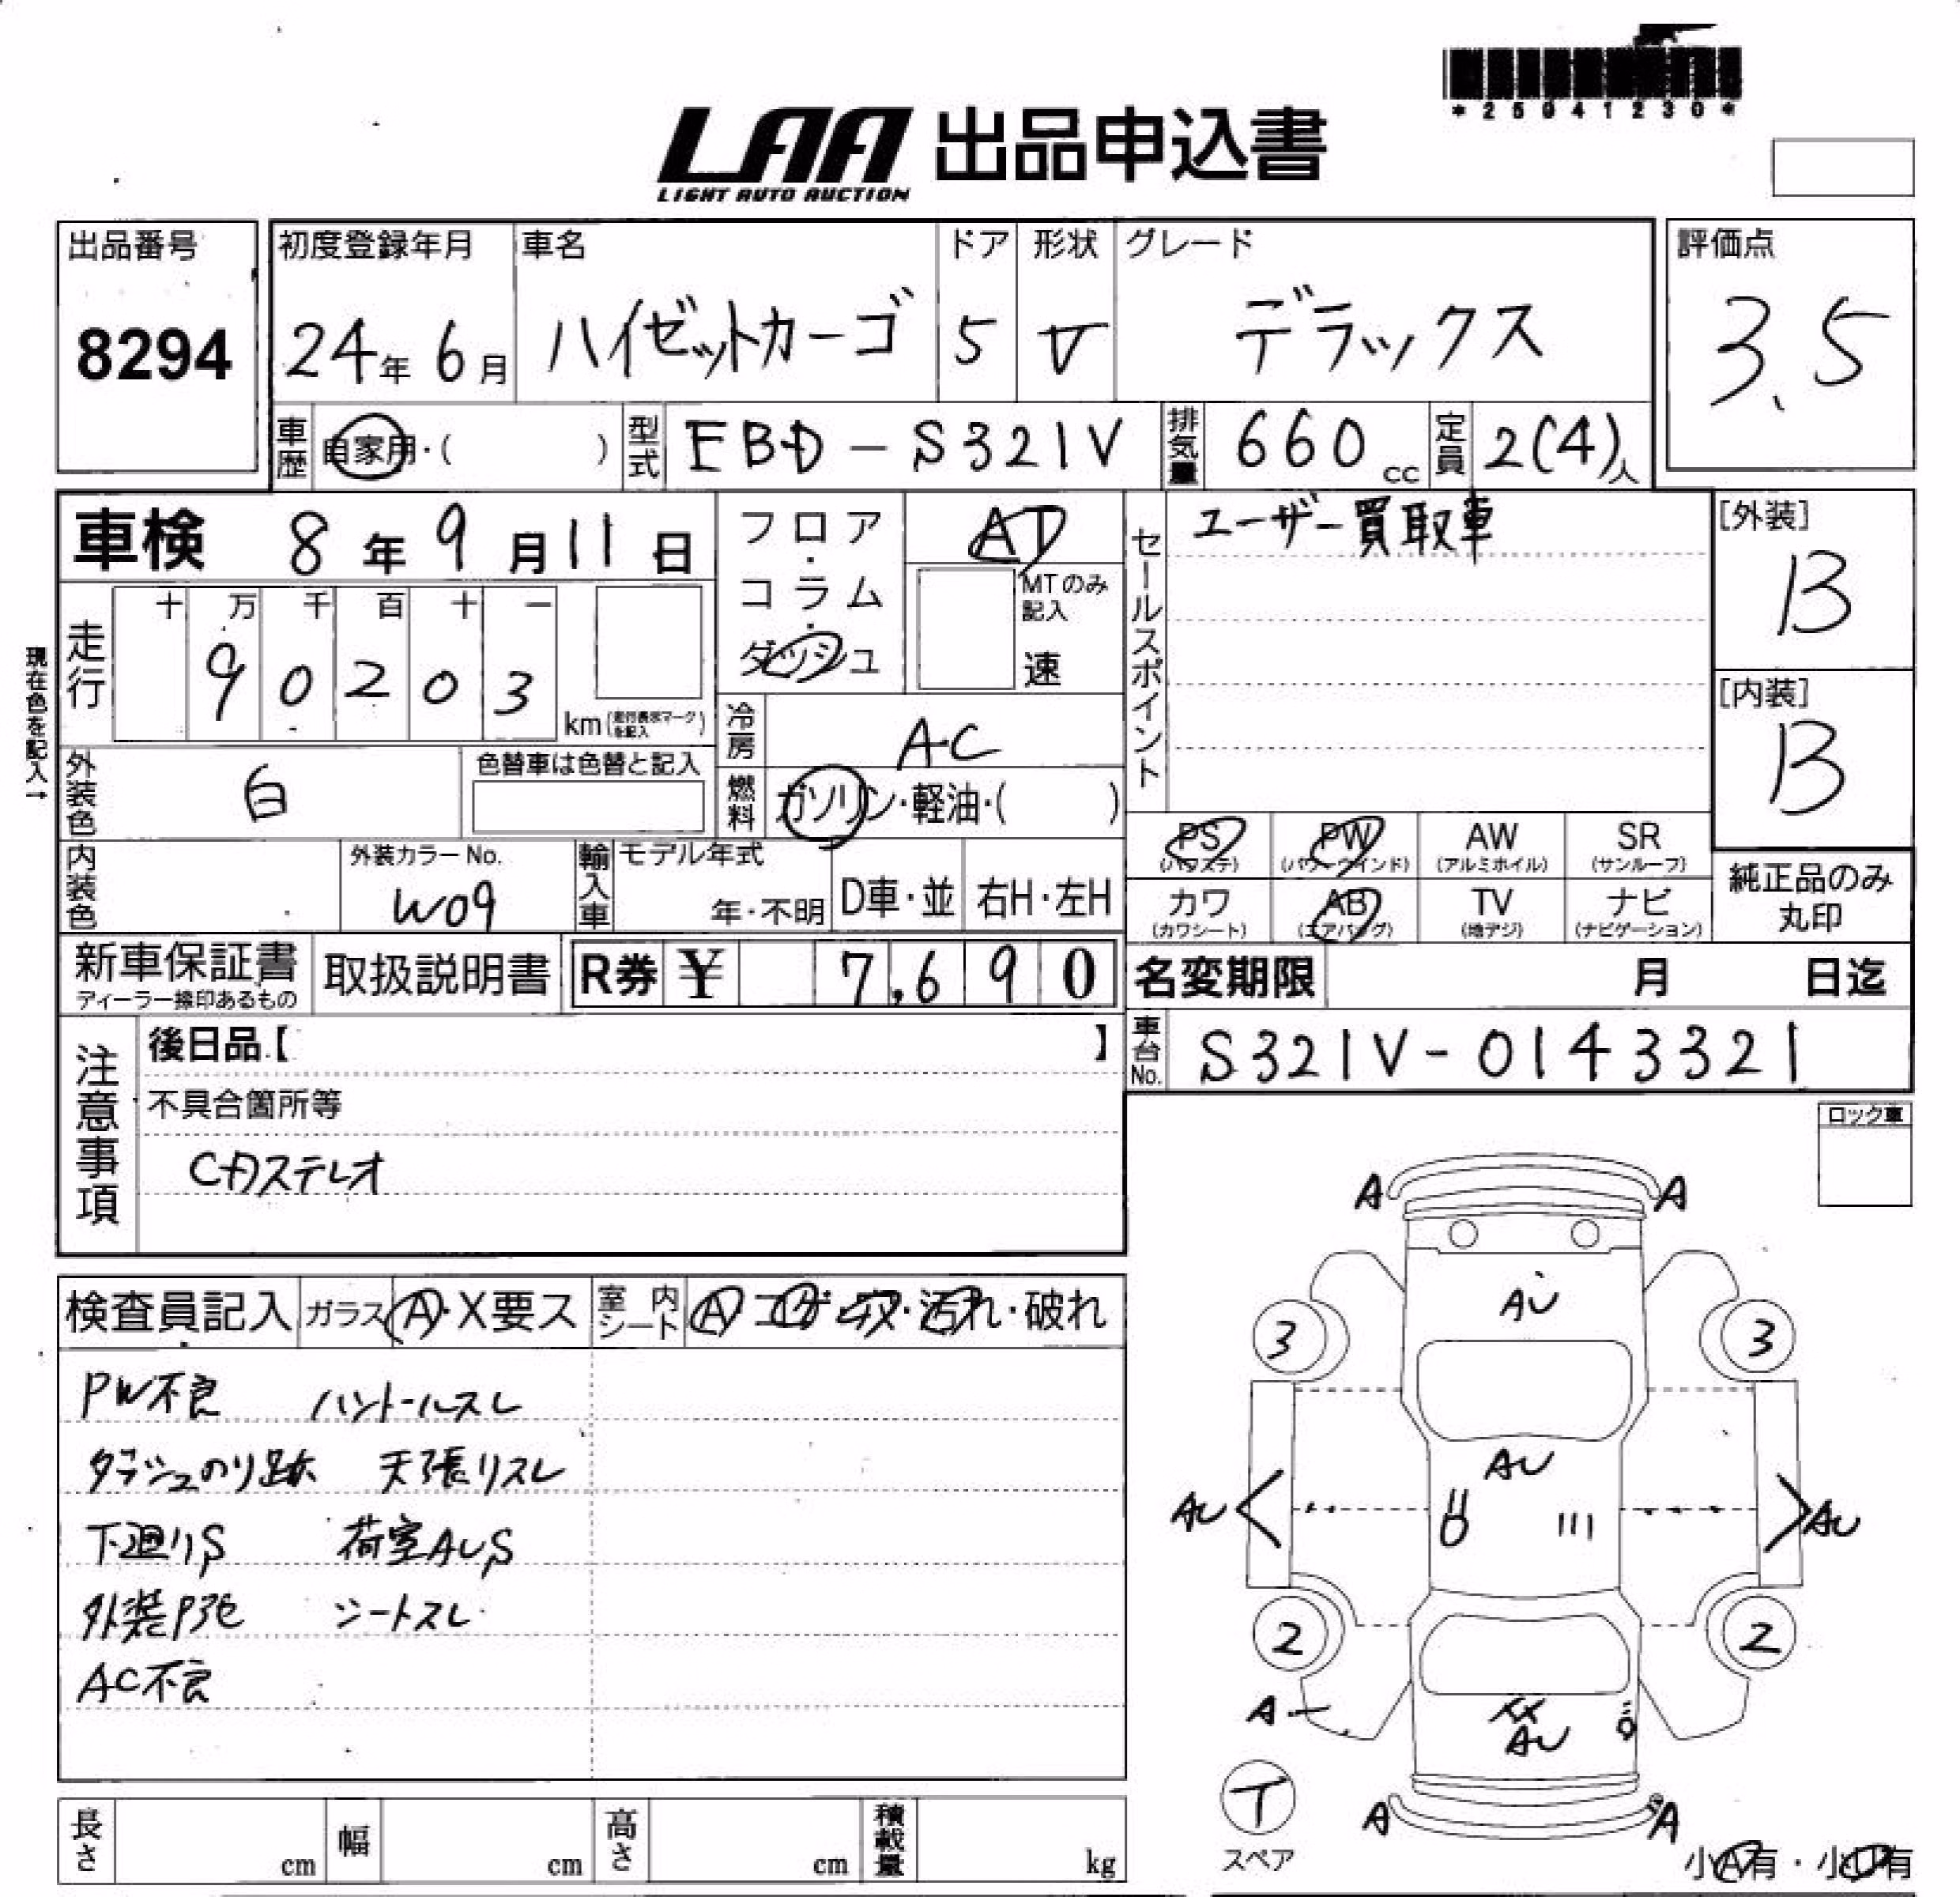 *25941230*
LAA 出品申込書
LIGHT AUTO AUCTION
出品番号
8294
初度登録年月
24年 6月
車名
ハイゼットカーゴ
ドア
5
形状
V
グレード
デラックス
評価点
3.5
車歴 自家用・( )
型式 EBD-S321V
排気量 660cc
定員 2(4)人
車検 8年 9月 11日
フロア・コラム・ダッシュ
AT
MTのみ記入
速
セールスポイント
ユーザー買取車
[外装]
B
[内装]
B
現在色を記入→
走行
十 万 千 百 十 一
9 0 2 0 3
km (走行表示マークを記入)
冷房 AC
外装色 白
色替車は色替と記入
燃料 ガソリン・軽油・( )
PS (パワステ)
PW (パワーウインド)
AW (アルミホイル)
SR (サンルーフ)
内装色
外装カラーNo.
W09
輸入車
モデル年式
年・不明
D車・並
右H・左H
カワ (カワシート)
AB (エアバッグ)
TV (地デジ)
ナビ (ナビゲーション)
純正品のみ
丸印
新車保証書
ディーラー捺印あるもの
取扱説明書
R券 ¥ 7,690
名変期限 月 日迄
車台No. S321V-0143321
注意事項
後日品【 】
不具合箇所等
CDステレオ
ロック車
検査員記入
ガラス A・X要ス
室内シート A コゲ・穴・汚れ・破れ
PW不良 ハンドルスレ
ダッシュのり跡 天張リスレ
下廻りS 荷室AUS
外装P3色 シートスレ
AC不良
A A
AU
3 3
AU
AU AU
2 2
A
XX
AU
T
スペア
A A
小A有・小U有
長さ cm
幅 cm
高さ cm
積載量 kg